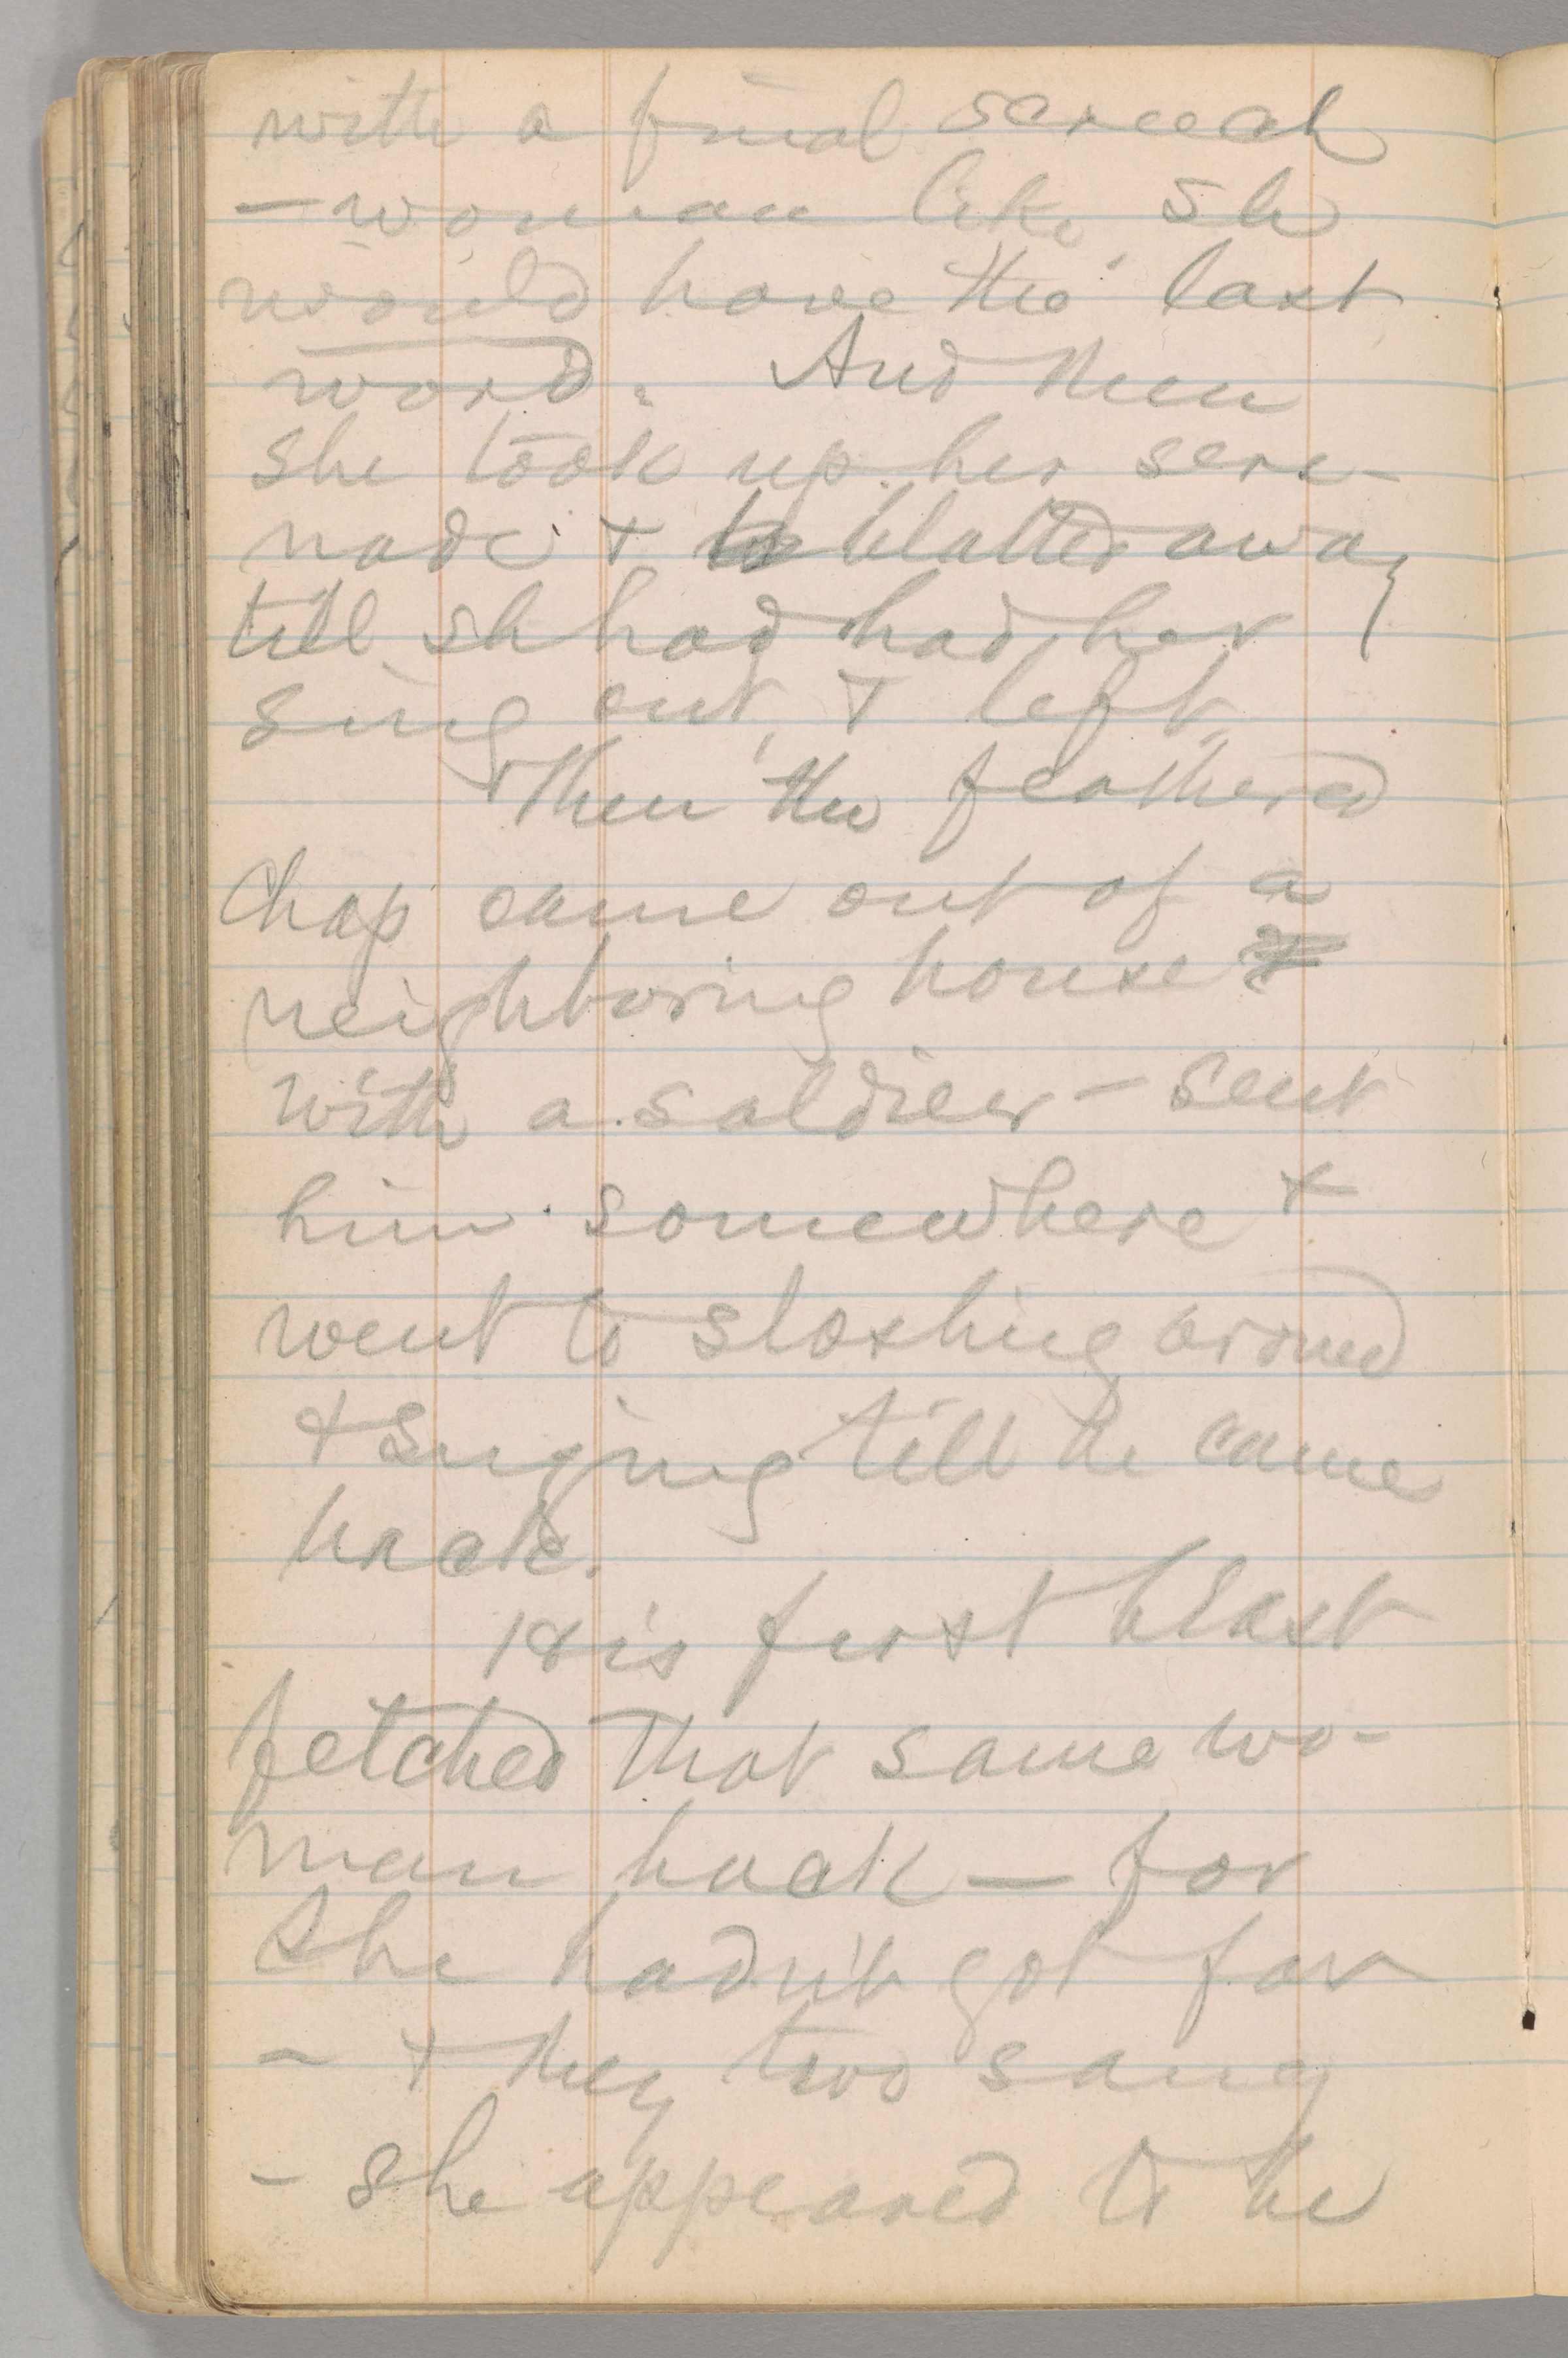 with a final screech
— woman like, sh
would have the last
word. And then
she took up her sere-
nade & blatted away
till sh had had her
sing out, & left.
Then the feathered
chap came out of a
neighboring house
with a soldier — sent
him somewhere &
went to sloshing around
& singing till he came
back.
His first blast
fetched that same wo-
man back — for
she hadn't got far
— & they two sang
— she appeared to be